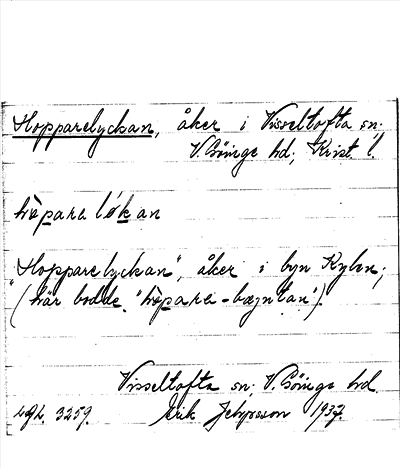 Hopparelyckan, åker i Visseltofta sn;
V. Göinge hd; Krist. l.
hòpara løkan
"Hopparelyckan", åker i byn Kylen;
(här bodde "hòpara-bæntan").
Visseltofta sn; V. Göinge hd.
3259. Erik Jeppsson 1937.